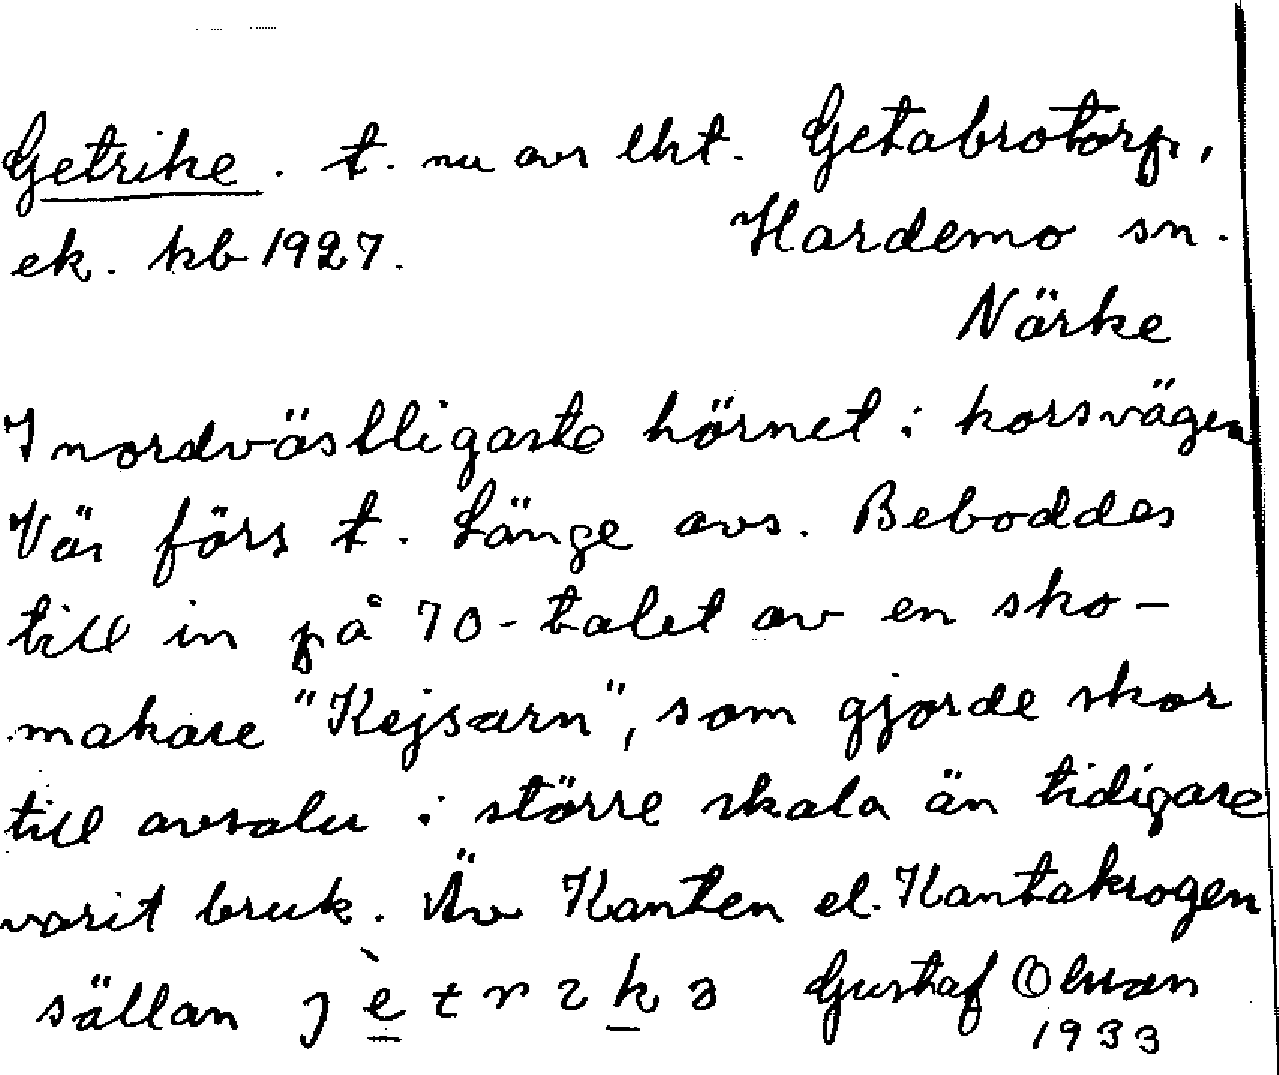 Getrike. t. nu avs lht. Getabrotorp,
ek. kb 1927. Hardemo sn.
Närke
I nordvästligaste hörnet i korsvägen
Var förs t. Länge avs. Beboddes
till in på 70-talet av en sko-
makare "Kejsarn", som gjorde skor
till avsalu i större skala än tidigare
varit bruk. Äv Kanten el. Kantakrogen
sällan Gustaf Olsson
1933